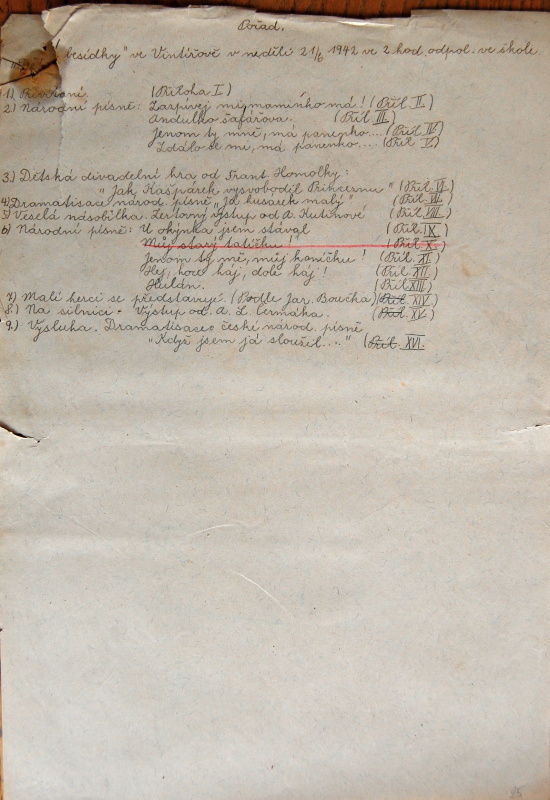 Pořad.
besídky" ve Vintířově v neděli 21/6 1942 ve 2 hod. odpol. ve škole.
1.) Přivítání. (Příloha I.)
2.) Národní písně: Zazpívej mi, maminko má! (Příl. II.)
Andulko šafářova. (Příl. III.)
Jenom ty mně, má panenko.... (Příl. IV.)
Zdálo se mi, má panenko.... (Příl. V.)
3.) Dětská divadelní hra od Frant. Homolky:
"Jak Kašpárek vysvobodil Princeznu" (Příl. VI.)
4.) Dramatisace národ. písně "Já husárek malý" (Příl. VII.)
5.) Veselá násobilka. Žertovný výstup od A. Kutinové (Příl. VIII.)
6.) Národní písně: U okýnka jsem stával (Příl. IX.)
Můj starý tatíčku! (Příl. X.)
Jenom ty mě, můj koníčku! (Příl. XI.)
Hej, hore háj, dolu háj! (Příl. XII.)
Hulán. (Příl. XIII.)
7.) Malí herci se představují. (Podle Jar. Boučka) (Příl. XIV.)
8.) Na silnici - Výstup od A. L. Čermáka. (Příl. XV.)
9.) Výsluha. Dramatisace české národ. písně
"Když jsem já sloužil...." (Příl. XVI.
25